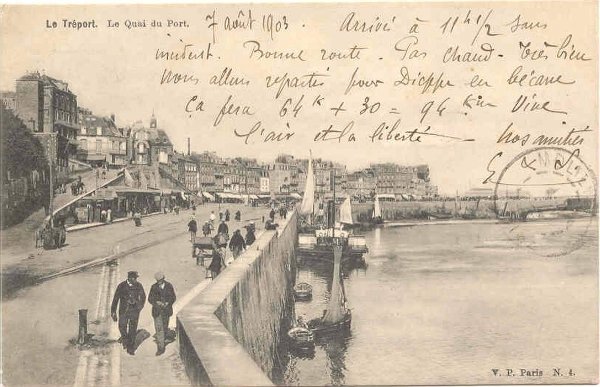 Le Tréport. Le Quai du Port.
7 août 1903. Arrivé à 11h 1/2 sans
incident. Bonne route. Pas chaud. Très bien
Nous allons repartir pour Dieppe en bécane
Ça fera 64 K + 30 = 94 Km Vive
l'air et la liberté — nos amitiés
V. P. Paris N. 4.